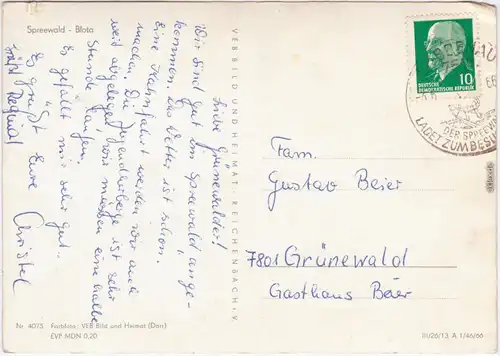 Spreewald - Blota
Liebe Grünewalder!
Wir sind gut im Spreewald ange-
kommen. Das Wetter ist schön.
Eine Kahnfahrt werden wir auch
machen. Die Jugendherberge ist sehr
weit abgelegen, wir müssen eine halbe
Stunde laufen.
Es gefällt mir sehr gut.
Es grüßt Eure
Christel
VEB BILD UND HEIMAT, REICHENBACH i. V.
10
DEUTSCHE
DEMOKRATISCHE REPUBLIK
DER SPREEWALD
LADET ZUM BESUCH
Fam.
Gustav Beier
7801 Grünewald
Gasthaus Beier
Nr. 4075 Farbfoto: VEB Bild und Heimat (Don)
EVP MDN 0,20
III/26/13 A 1/46/66